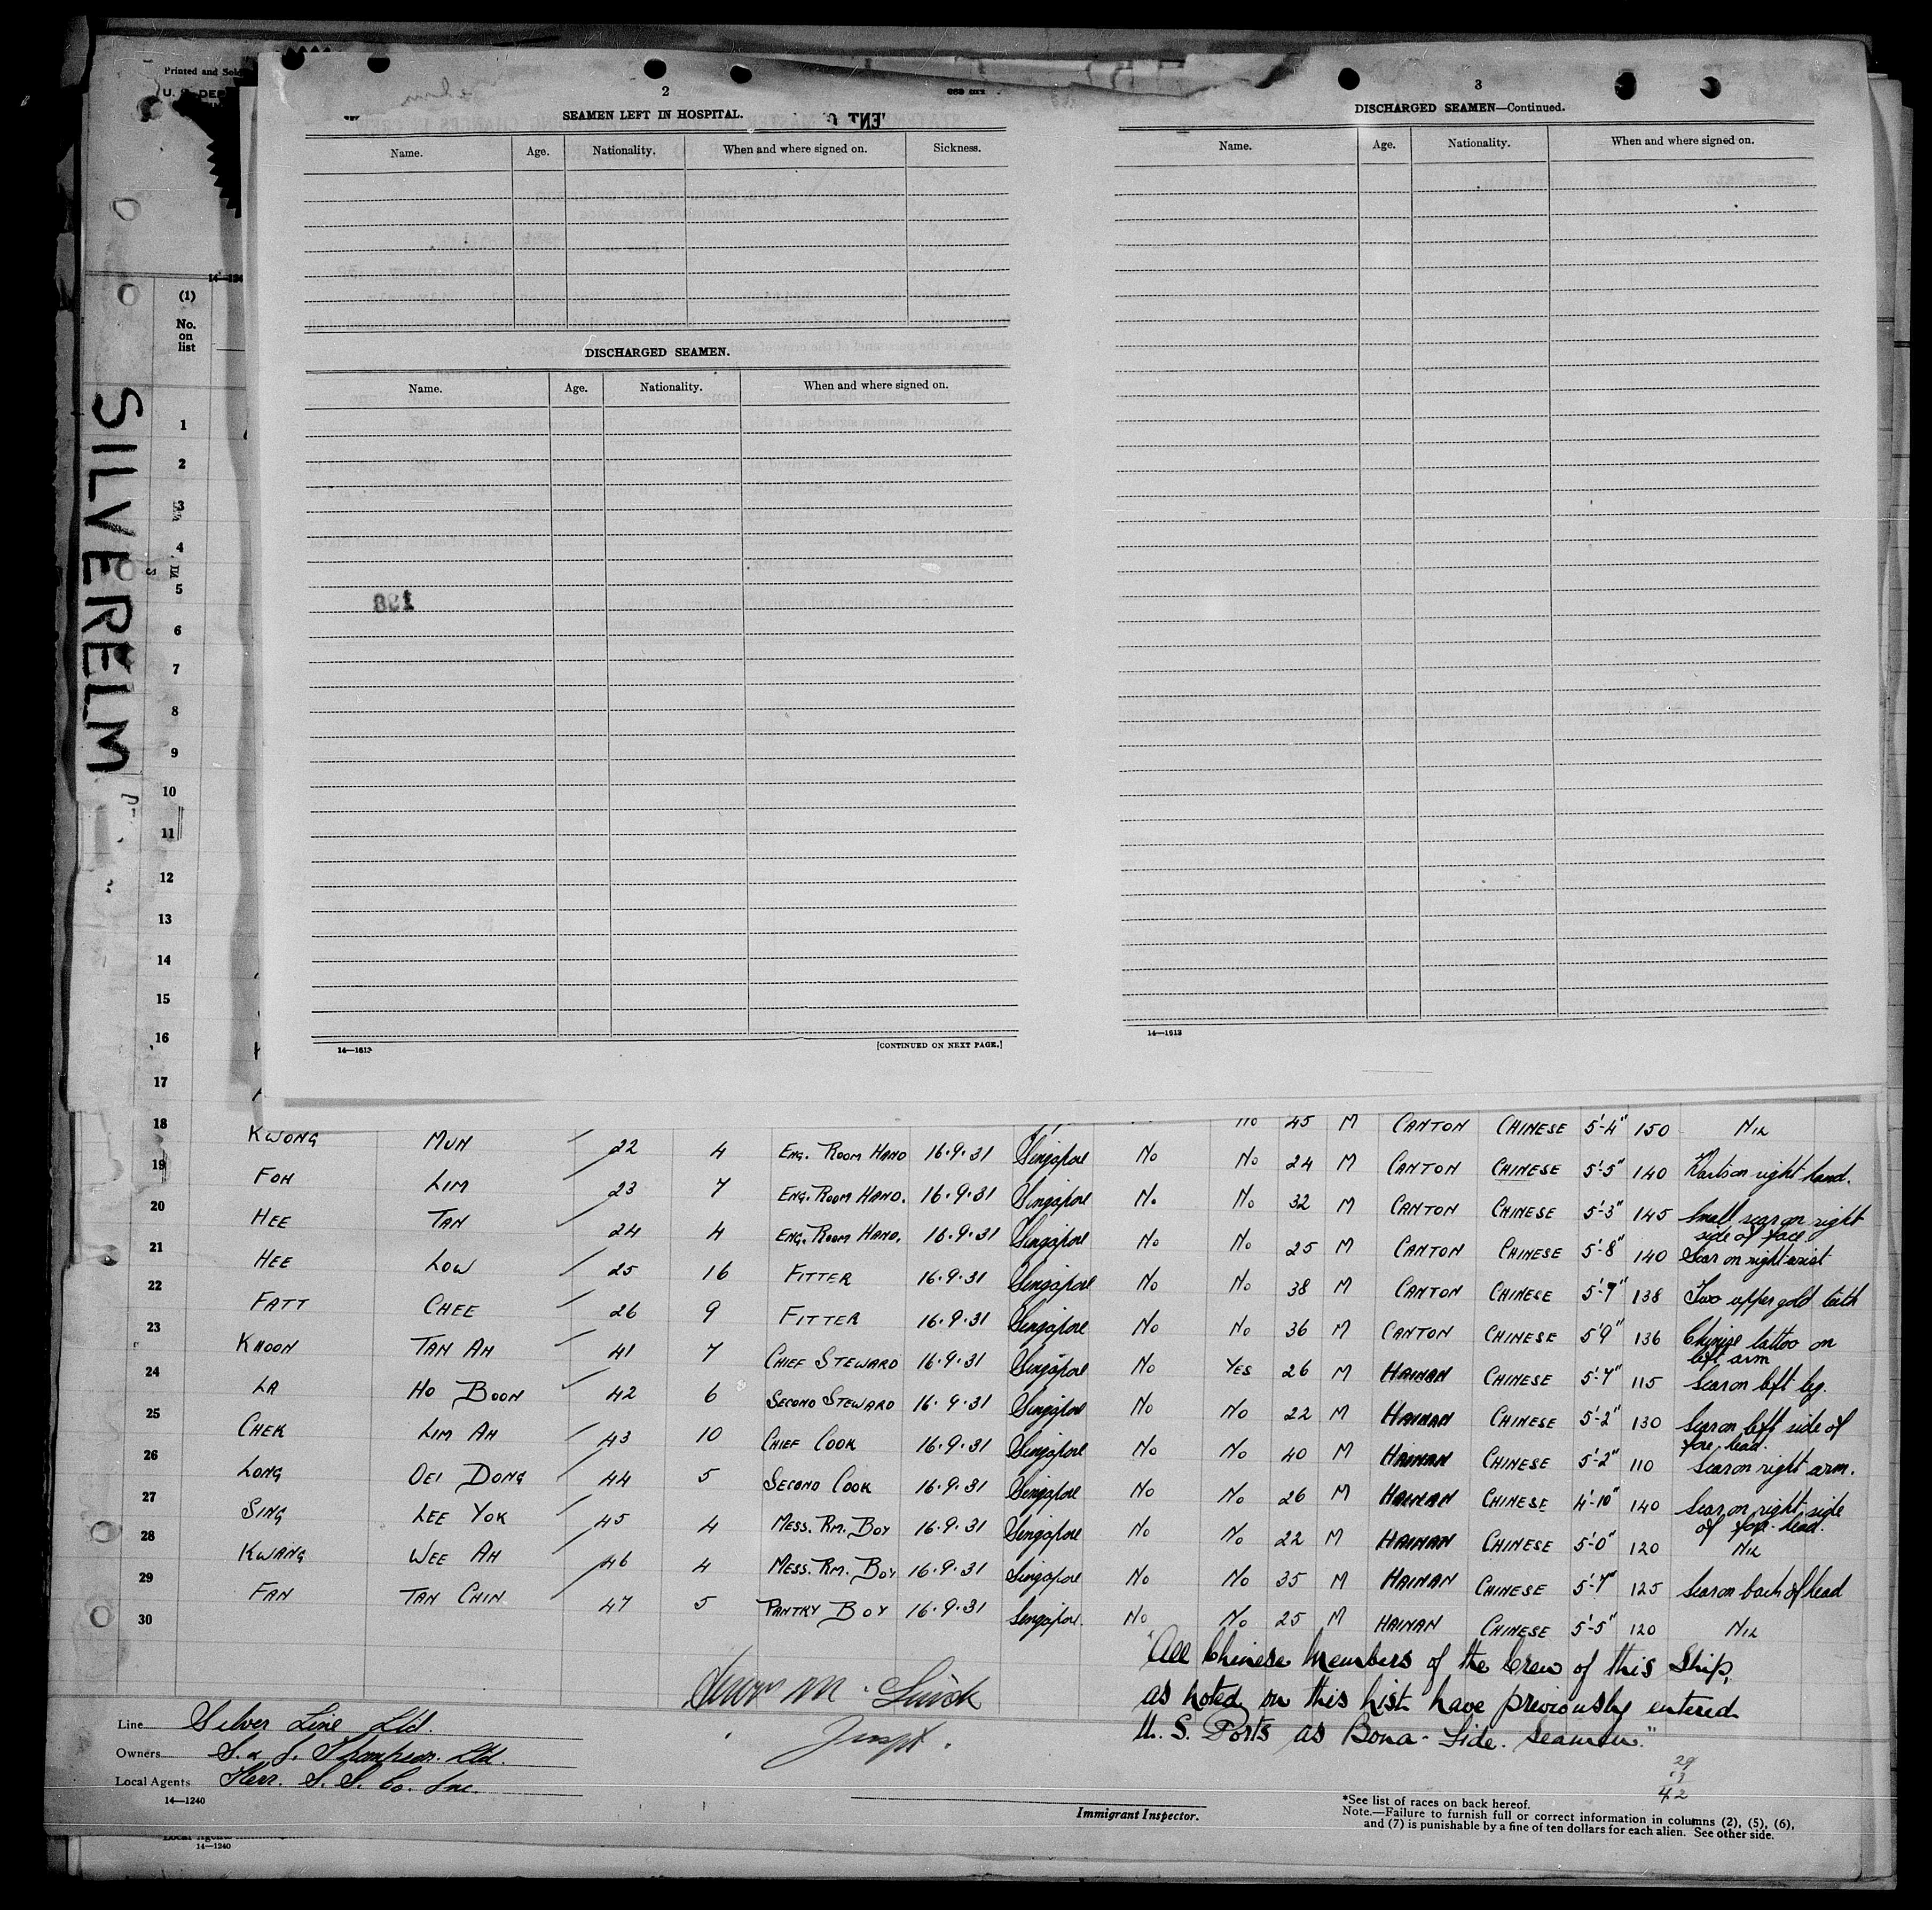 Printed and Sold
U. S. DEP
2
SEAMEN LEFT IN HOSPITAL.
Name. Age. Nationality. When and where signed on. Sickness.
DISCHARGED SEAMEN.
Name. Age. Nationality. When and where signed on.
14—1613
[CONTINUED ON NEXT PAGE.]
3
DISCHARGED SEAMEN—Continued.
Name. Age. Nationality. When and where signed on.
14—1613
SILVERELM
(1)
No.
on
list
1
2
3
4
5
6
7
8
9
10
11
12
13
14
15
16
17
18 No 45 M CANTON CHINESE 5'-4" 150 NIL
19 KWONG MUN 22 4 ENG. ROOM HAND 16.9.31 Singapore No No 24 M CANTON CHINESE 5'-5" 140 Warts on right hand.
20 FOH LIM 23 7 ENG. ROOM HAND. 16.9.31 Singapore No No 32 M CANTON CHINESE 5'-3" 145 Small scar on right
side of face
21 HEE TAN 24 4 ENG. ROOM HAND. 16.9.31 Singapore No No 25 M CANTON CHINESE 5'-8" 140 Scar on right wrist
22 HEE LOW 25 16 FITTER 16.9.31 Singapore No No 38 M CANTON CHINESE 5'-7" 138 Two upper gold teeth
23 FATT CHEE 26 9 FITTER 16.9.31 Singapore No No 36 M CANTON CHINESE 5'9" 136 Chinese tattoo on
left arm
24 KHOON TAN AH 41 7 CHIEF STEWARD 16.9.31 Singapore No YES 26 M HAINAN CHINESE 5'-7" 115 Scar on left leg.
25 LA HO BOON 42 6 SECOND STEWARD 16.9.31 Singapore No No 22 M HAINAN CHINESE 5'-2" 130 Scar on left side of
fore head.
26 CHEK LIM AH 43 10 CHIEF COOK 16.9.31 Singapore No No 40 M HAINAN CHINESE 5'-2" 110 Scar on right arm.
27 LONG OEI DONG 44 5 SECOND COOK 16.9.31 Singapore No No 26 M HAINAN CHINESE 4'-10" 140 Scar on right side
of fore-head.
28 SING LEE YOK 45 4 MESS. RM. BOY 16.9.31 Singapore No No 22 M HAINAN CHINESE 5'-0" 120 NIL
29 KWANG WEE AH 46 4 MESS. RM. BOY 16.9.31 Singapore No No 35 M HAINAN CHINESE 5'-7" 125 Scar on back of head
30 FAN TAN CHIN 47 5 PANTRY BOY 16.9.31 Singapore. No No 25 M HAINAN CHINESE 5'-5" 120 NIL
"All Chinese Members of the Crew of this Ship,
as noted on this list have previously entered
U. S. Ports as Bona-Fide Seamen."
Inspt.
Line Silver Line Ltd.
Owners S. & J. Thompson. Ltd.
Local Agents Kerr. S. S. Co. Inc.
14—1240
29
13
42
Immigrant Inspector.
*See list of races on back hereof.
Note.—Failure to furnish full or correct information in columns (2), (5), (6),
and (7) is punishable by a fine of ten dollars for each alien. See other side.
Local Agents
14—1240